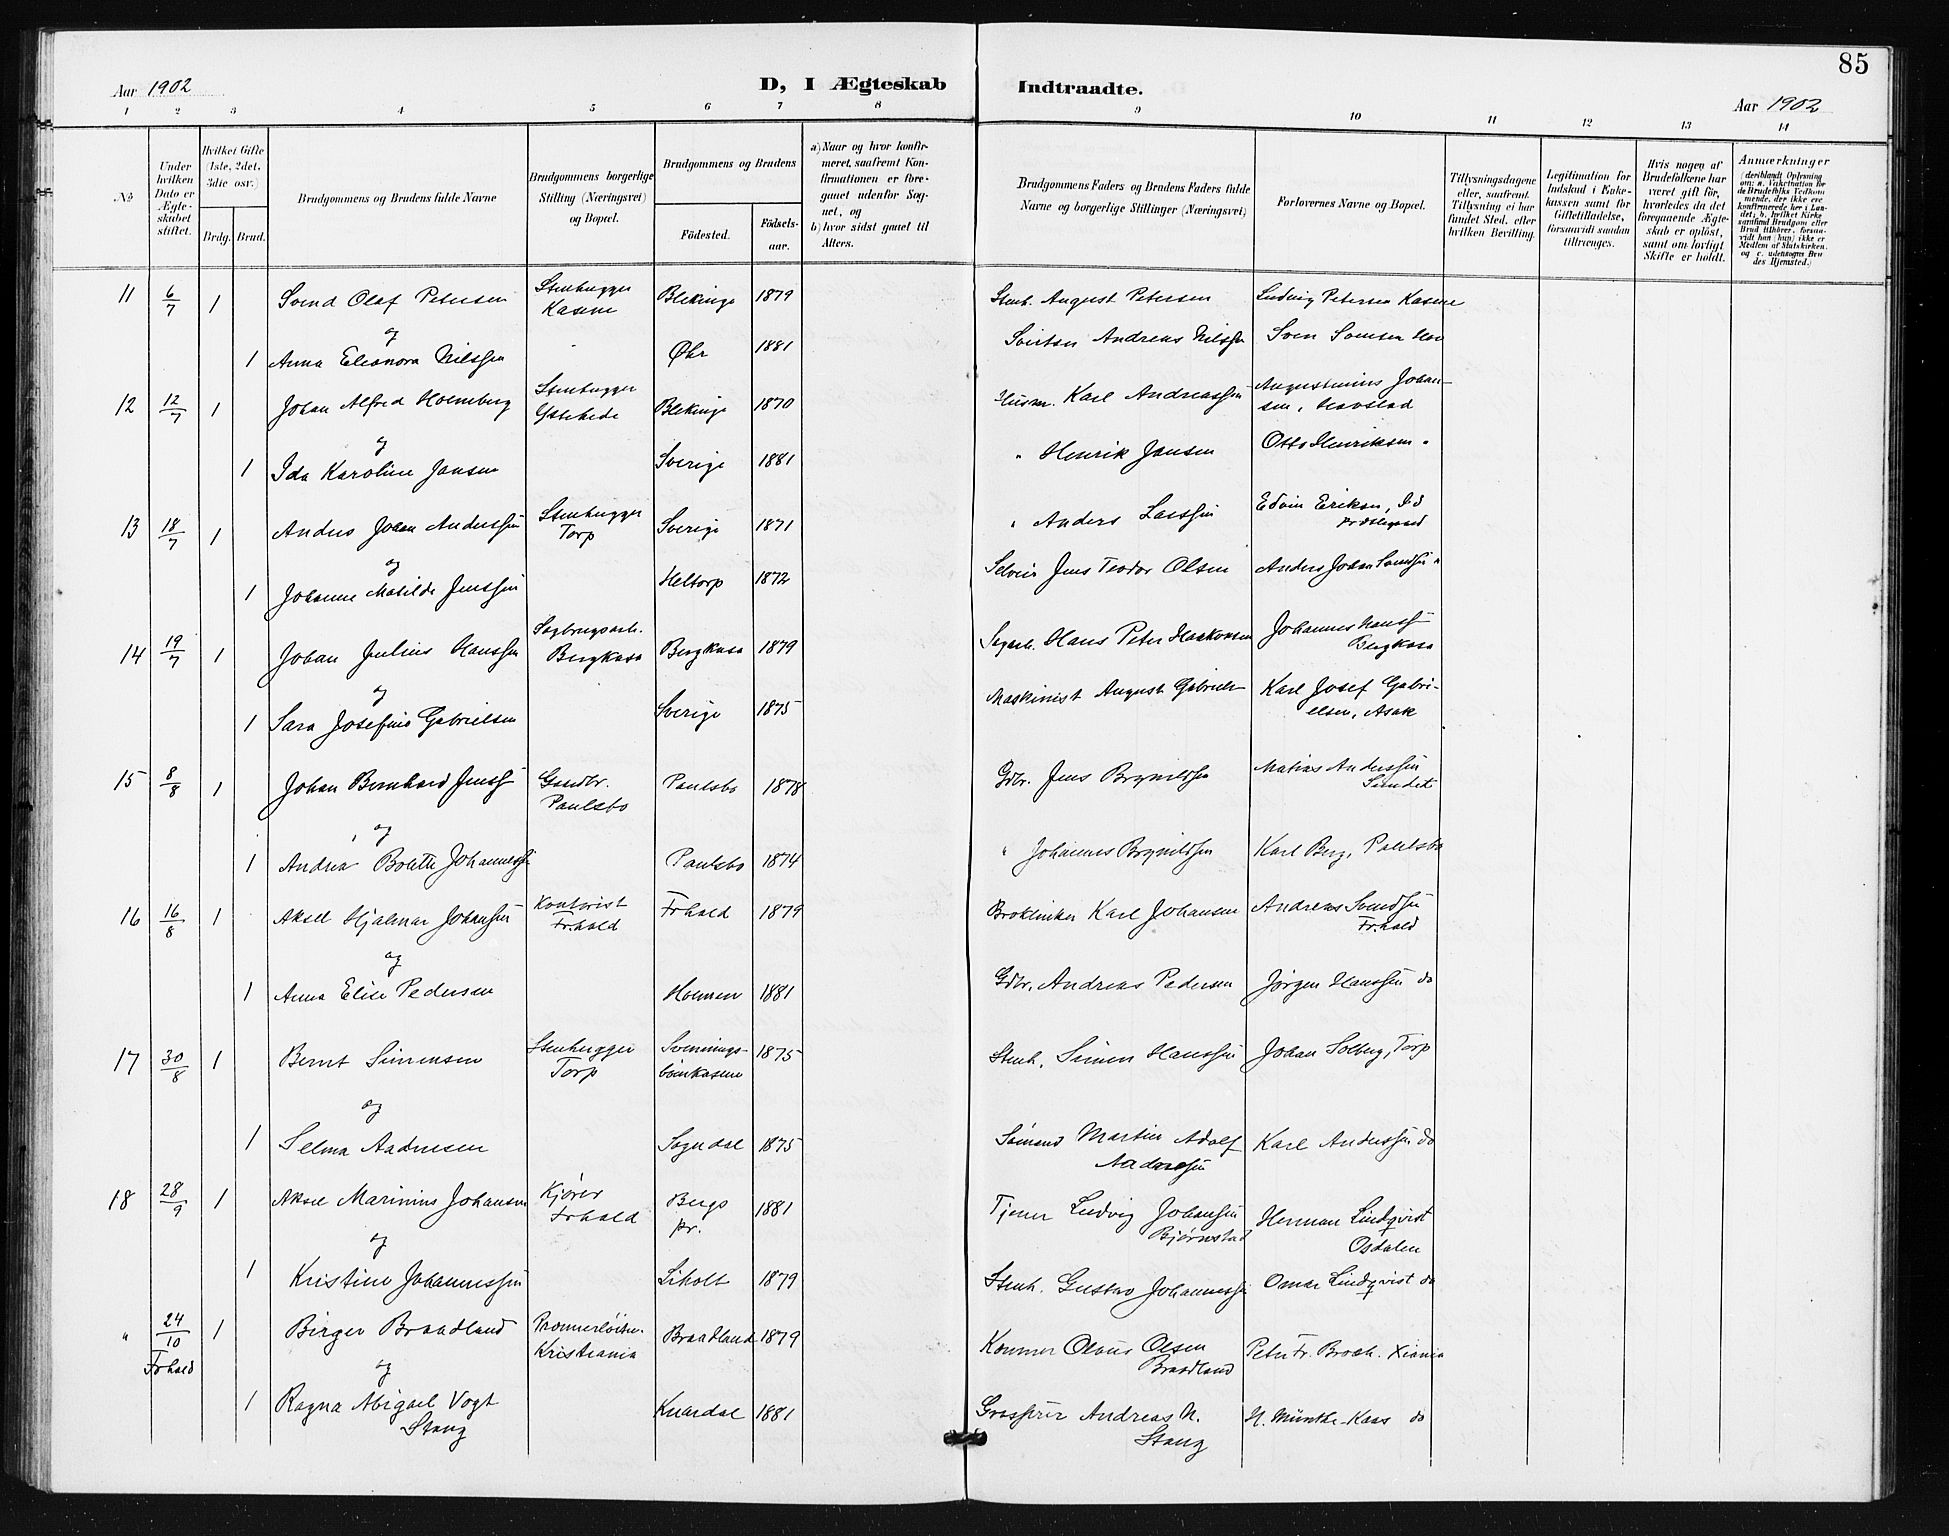 85
Aar 1902
D, I Ægteskab Indtraadte.
Aar 1902
1 2 3 4 5 6 7 8 9 10 11 12 13 14
№
Under hvilken Dato er Ægteskabet stiftet.
Hvilket Gifte (1ste, 2det, 3die osv.)
Brdg. Brud.
Brudgommens og Brudens fulde Navne
Brudgommens borgerlige Stilling (Næringsvei) og Bopæl.
Brudgommens og Brudens
Födested.
Födselsaar.
a) Naar og hvor konfirmeret, saafremt Konfirmationen er foregaaet udenfor Sognet, og
b) hvor sidst gaaet til Alters.
Brudgommens Faders og Brudens Faders fulde Navne og borgerlige Stillinger (Næringsvei)
Forlovernes Navne og Bopæl.
Tillysningsdagene eller, saafremt Tillysning ei har fundet Sted, efter hvilken Bevilling.
Legitimation for Indskud i Enkekassen samt for Giftetilladelse, forsaavidt saadan tiltrænges.
Hvis nogen af Brudefolkene har været gift før, hvorledes da det foregaaende Ægteskab er oplöst, samt om lovligt Skifte er holdt.
Anmærkninger
11 6/7 1 Svend Olaf Petersen Stenhugger Kasene Blekinge 1879 Stenh. August Petersen Ludvig Petersen Kasene
og
1 Anna Eleonora Nilssen Øbr 1881 Andreas Nilssen Sven
12 12/7 1 Johan Alfred Holmberg Stenhugger Blekinge 1870 Husm. Karl Andreassen Augustinius Johansen,
og
1 Ida Karoline Jansen Sverige 1881 " Henrik Jansen Otto Henriksen "
13 18/7 1 Anders Johan Anderssen Stenhugger Torp Sverige 1871 " Anders Larssen Edvin Eriksen, Id Prestegaard
og
1 Johanne Matilde Jenssen Heltorp 1872 Selveier Jens Teodor Olsen Anders Johan Svendsen "
14 19/7 1 Johan Julius Hanssen Sagbrugsarb. Bergkasa Bergkasa 1879 Sagarb. Hans Peter Haakonsen Johannes Hanss. Bergkasa
og
1 Sara Josefine Gabrielsen Sverige 1875 Maskinist August Gabriels. Karl Josef Gabrielsen, Asak
15 8/8 1 Johan Bernhard Jenss. Gaardbr. Paulsbo Paulsbo 1878 Gdbr. Jens Brynildsen Matias Anderssen Sundet
og
1 Andrea Bolette Johannessen Paulsbo 1874 " Johannes Brynildsen Karl Berg, Paulsbo
16 16/8 1 Aksel Hjalmar Johanssen Kontorist Fr.hald Frhald 1879 Karl Johansen Andreas Svendsen Fr.hald
og
1 Anna Elise Pedersen Holmen 1881 Gdbr. Andreas Pedersen Jørgen Hanssen do
17 30/8 1 Bernt Simensen Stenhugger Torp 1875 Stenh. Simen Hanssen Johan Solberg, Torp
og
1 Selma Aadnesen Sogndal 1875 Sømand Martin Adolf Aadnesen Karl Anderssen do
18 28/9 1 Aksel Marinius Johansen Kjører Frhald Bergs pr. 1881 Tjener Ludvig Johansen Bjørnstad Herman Lindqvist Osdalen
og
1 Kristine Johannessen Liholt 1879 Stenh. Gustav Johannessen Omar Lindqvist do
" 24/10 Frhald 1 Birger Braadland Premierløitn. Kristiania Braadland 1879 Olaus Olsen Braadland Peter Fr. Broch. Xiania
og
1 Ragna Abigael Vogt Stang Knardal 1881 Grosserer Andreas N. Stang H. Münthe-Kaas do